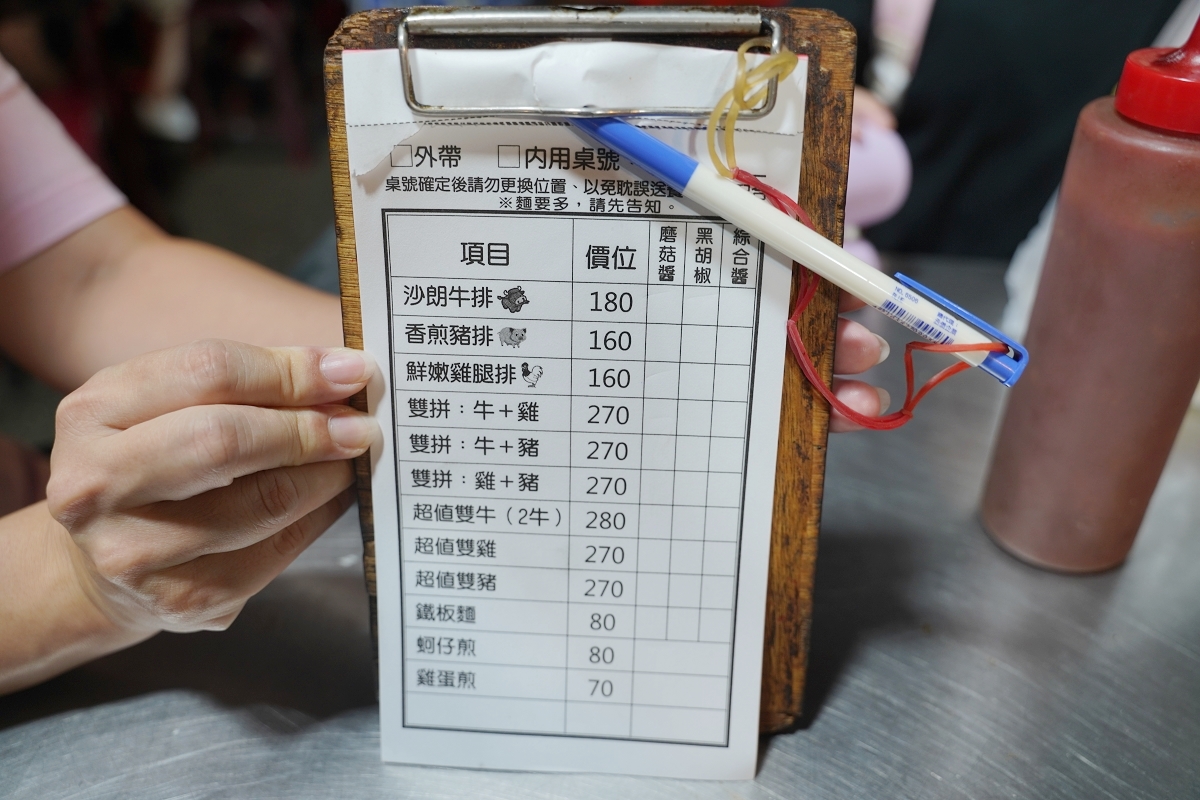 □外帶 □內用桌號
桌號確定後請勿更換位置、以免耽誤送
※麵要多，請先告知。
項目 價位 磨菇醬 黑胡椒 綜合醬
沙朗牛排 180
香煎豬排 160
鮮嫩雞腿排 160
雙拼：牛＋雞 270
雙拼：牛＋豬 270
雙拼：雞＋豬 270
超值雙牛（2牛） 280
超值雙雞 270
超值雙豬 270
鐵板麵 80
蚵仔煎 80
雞蛋煎 70